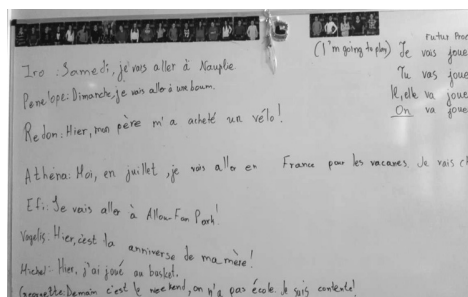 Futur Proc
(I'm going to play) Je vais joue
Tu vas joue
Il, elle va joue
On va joue
Iro: Samedi, je vais aller à Nauplie
Penelope: Dimanche, je vais aller à une boum.
Redon: Hier, mon père m'a acheté un vélo!
Athéna: Moi, en juillet, je vais aller en France pour les vacances. Je vais
Efi: Je vais aller à Allou-Fan Park!
Vagelis: Hier, c'est la anniverse de ma mère!
Michel: Hier, j'ai joué au basket.
Georgette: Demain c'est le weekend, on n'a pas école. Je suis contente!